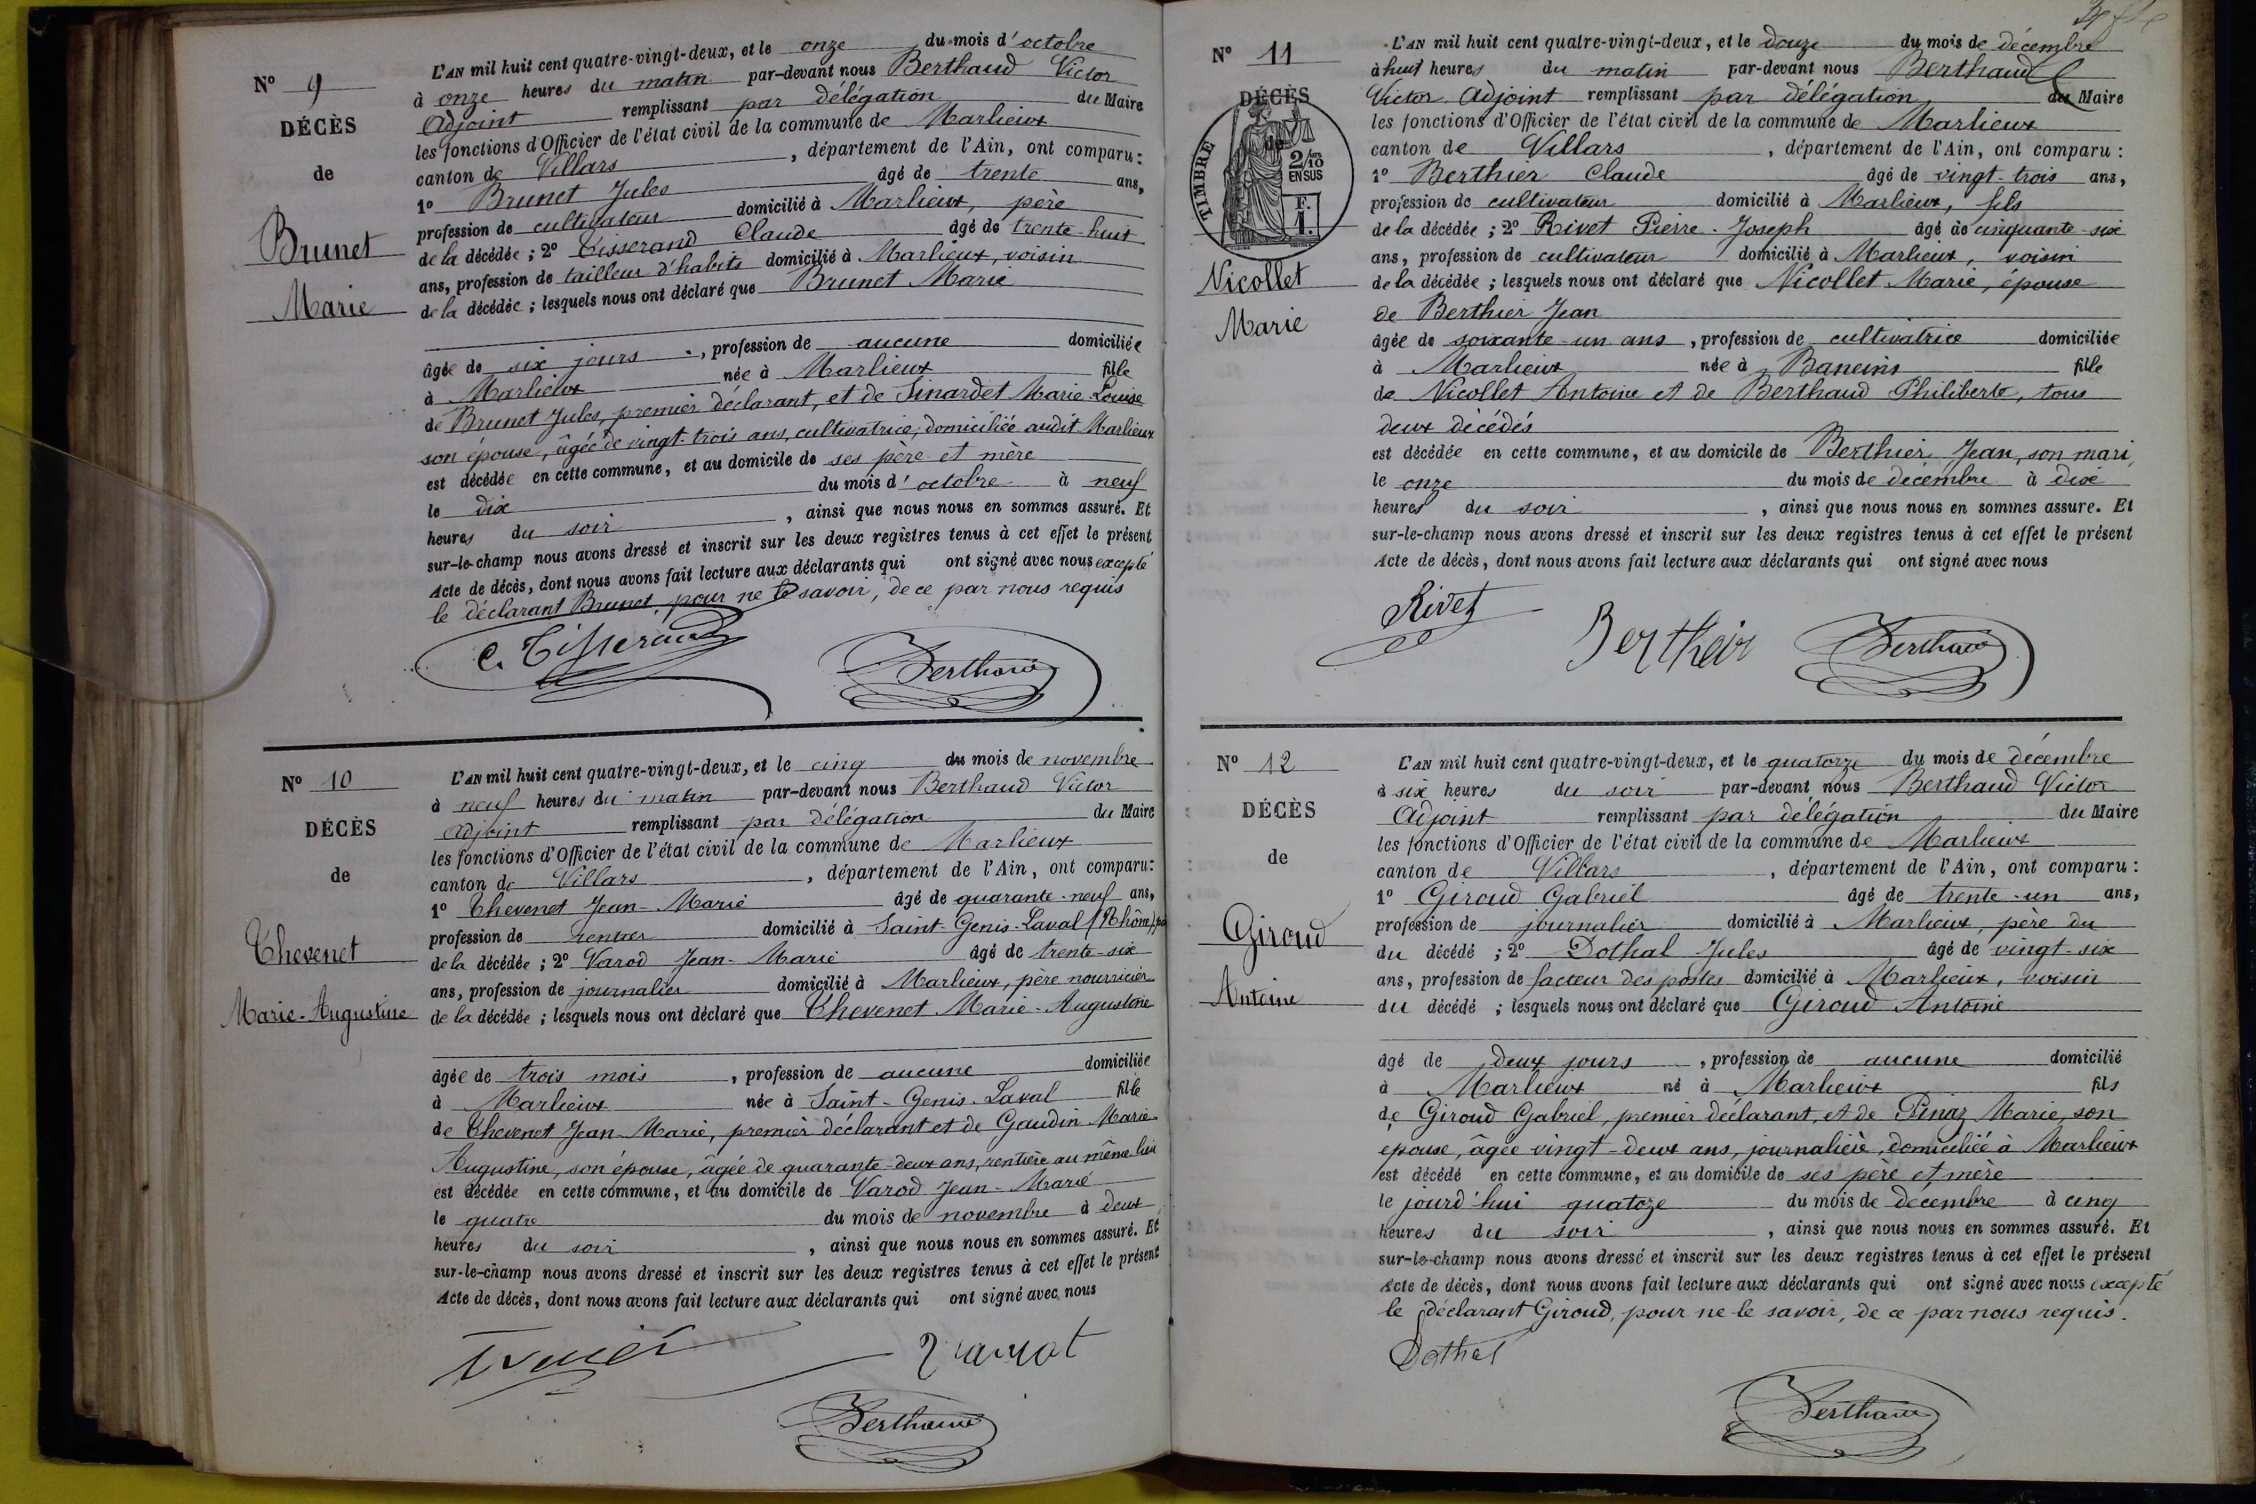 N° 9
DÉCÈS
de
Brunet
Marie
L'AN mil huit cent quatre-vingt-deux, et le onze du mois d'octobre
à onze heures du matin par-devant nous Berthaud Victor
Adjoint remplissant par délégation du Maire
les fonctions d'Officier de l'état civil de la commune de Marlieux
canton de Villars, département de l'Ain, ont comparu :
1° Brunet Jules âgé de trente ans,
profession de cultivateur domicilié à Marlieux, père
de la décédée ; 2° Tisserand Claude âgé de trente-huit
ans, profession de tailleur d'habits domicilié à Marlieux, voisin
de la décédée ; lesquels nous ont déclaré que Brunet Marie
âgée de six jours, profession de aucune domiciliée
à Marlieux née à Marlieux fille
de Brunet Jules, premier déclarant, et de Sinardet Marie-Louise
son épouse, âgée de vingt-trois ans, cultivatrice, domiciliée audit Marlieux
est décédée en cette commune, et au domicile de ses père et mère
le dix du mois d'octobre à neuf
heures du soir, ainsi que nous nous en sommes assuré. Et
sur-le-champ nous avons dressé et inscrit sur les deux registres tenus à cet effet le présent
Acte de décès, dont nous avons fait lecture aux déclarants qui ont signé avec nous excepté
le déclarant Brunet, pour ne le savoir, de ce par nous requis
C. Tisserand
Berthaud
N° 10
DÉCÈS
de
Thevenet
Marie-Augustine
L'AN mil huit cent quatre-vingt-deux, et le cinq du mois de novembre
à neuf heures du matin par-devant nous Berthaud Victor
Adjoint remplissant par délégation du Maire
les fonctions d'Officier de l'état civil de la commune de Marlieux
canton de Villars, département de l'Ain, ont comparu :
1° Thevenet Jean-Marie âgé de quarante-neuf ans,
profession de rentier domicilié à Saint-Genis-Laval (Rhône), père
de la décédée ; 2° Varod Jean-Marie âgé de trente-six
ans, profession de journalier domicilié à Marlieux, père nourricier
de la décédée ; lesquels nous ont déclaré que Thevenet Marie-Augustine
âgée de trois mois, profession de aucune domiciliée
à Marlieux née à Saint-Genis-Laval fille
de Thevenet Jean-Marie, premier déclarant et de Gaudin Marie
Augustine, son épouse, âgée de quarante-deux ans, rentière au même lieu
est décédée en cette commune, et au domicile de Varod Jean-Marie
le quatre du mois de novembre à deux
heures du soir, ainsi que nous nous en sommes assuré. Et
sur-le-champ nous avons dressé et inscrit sur les deux registres tenus à cet effet le présent
Acte de décès, dont nous avons fait lecture aux déclarants qui ont signé avec nous
Berthaud
N° 11
DÉCÈS
TIMBRE
2/10
EN SUS
F.
1.
Nicollet
Marie
L'AN mil huit cent quatre-vingt-deux, et le douze du mois de décembre
à huit heures du matin par-devant nous Berthaud
Victor Adjoint remplissant par délégation du Maire
les fonctions d'Officier de l'état civil de la commune de Marlieux
canton de Villars, département de l'Ain, ont comparu :
1° Berthier Claude âgé de vingt-trois ans,
profession de cultivateur domicilié à Marlieux, fils
de la décédée ; 2° Rivet Pierre-Joseph âgé de cinquante-six
ans, profession de cultivateur domicilié à Marlieux, voisin
de la décédée ; lesquels nous ont déclaré que Nicollet Marie, épouse
de Berthier Jean
âgée de soixante-un ans, profession de cultivatrice domiciliée
à Marlieux née à Baneins fille
de Nicollet Antoine et de Berthaud Philiberte, tous
deux décédés
est décédée en cette commune, et au domicile de Berthier Jean, son mari,
le onze du mois de décembre à dix
heures du soir, ainsi que nous nous en sommes assuré. Et
sur-le-champ nous avons dressé et inscrit sur les deux registres tenus à cet effet le présent
Acte de décès, dont nous avons fait lecture aux déclarants qui ont signé avec nous
Rivet
Bertheir
Berthaud
N° 12
DÉCÈS
de
Giroud
Antoine
L'AN mil huit cent quatre-vingt-deux, et le quatorze du mois de décembre
à six heures du soir par-devant nous Berthaud Victor
Adjoint remplissant par délégation du Maire
les fonctions d'Officier de l'état civil de la commune de Marlieux
canton de Villars, département de l'Ain, ont comparu :
1° Giroud Gabriel âgé de trente-un ans,
profession de journalier domicilié à Marlieux, père du
du décédé ; 2° Dothal Jules âgé de vingt-six
ans, profession de facteur des postes domicilié à Marlieux, voisin
du décédé ; lesquels nous ont déclaré que Giroud Antoine
âgé de deux jours, profession de aucune domicilié
à Marlieux né à Marlieux fils
de Giroud Gabriel, premier déclarant, et de Pinaz Marie, son
épouse, âgée vingt-deux ans, journalière, domiciliée à Marlieux
est décédé en cette commune, et au domicile de ses père et mère
le jourd'hui quatoze du mois de décembre à cinq
heures du soir, ainsi que nous nous en sommes assuré. Et
sur-le-champ nous avons dressé et inscrit sur les deux registres tenus à cet effet le présent
Acte de décès, dont nous avons fait lecture aux déclarants qui ont signé avec nous excepté
le déclarant Giroud, pour ne le savoir, de ce par nous requis.
Dothal
Berthaud